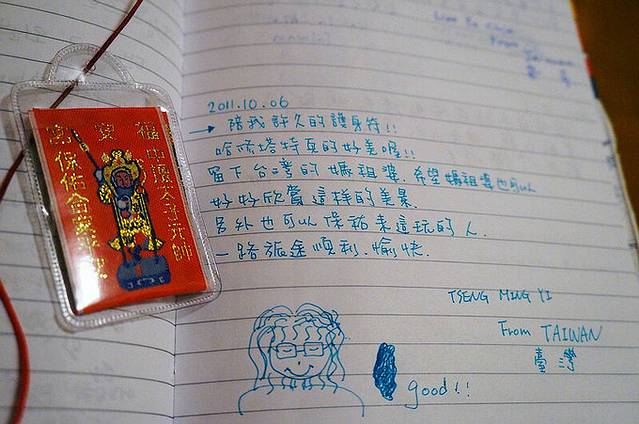 福安宮
中壇太子元帥
保佑合家平安
2011.10.06
→ 陪我許久的護身符!!
哈疏塔特真的好美喔!!
留下台灣的媽祖婆,希望媽祖婆也可以
好好欣賞這样的美景.
另外也可以保祐来這玩的人.
一路旅途順利.愉快.
TSENG MING YI
From TAIWAN
臺灣
good!!